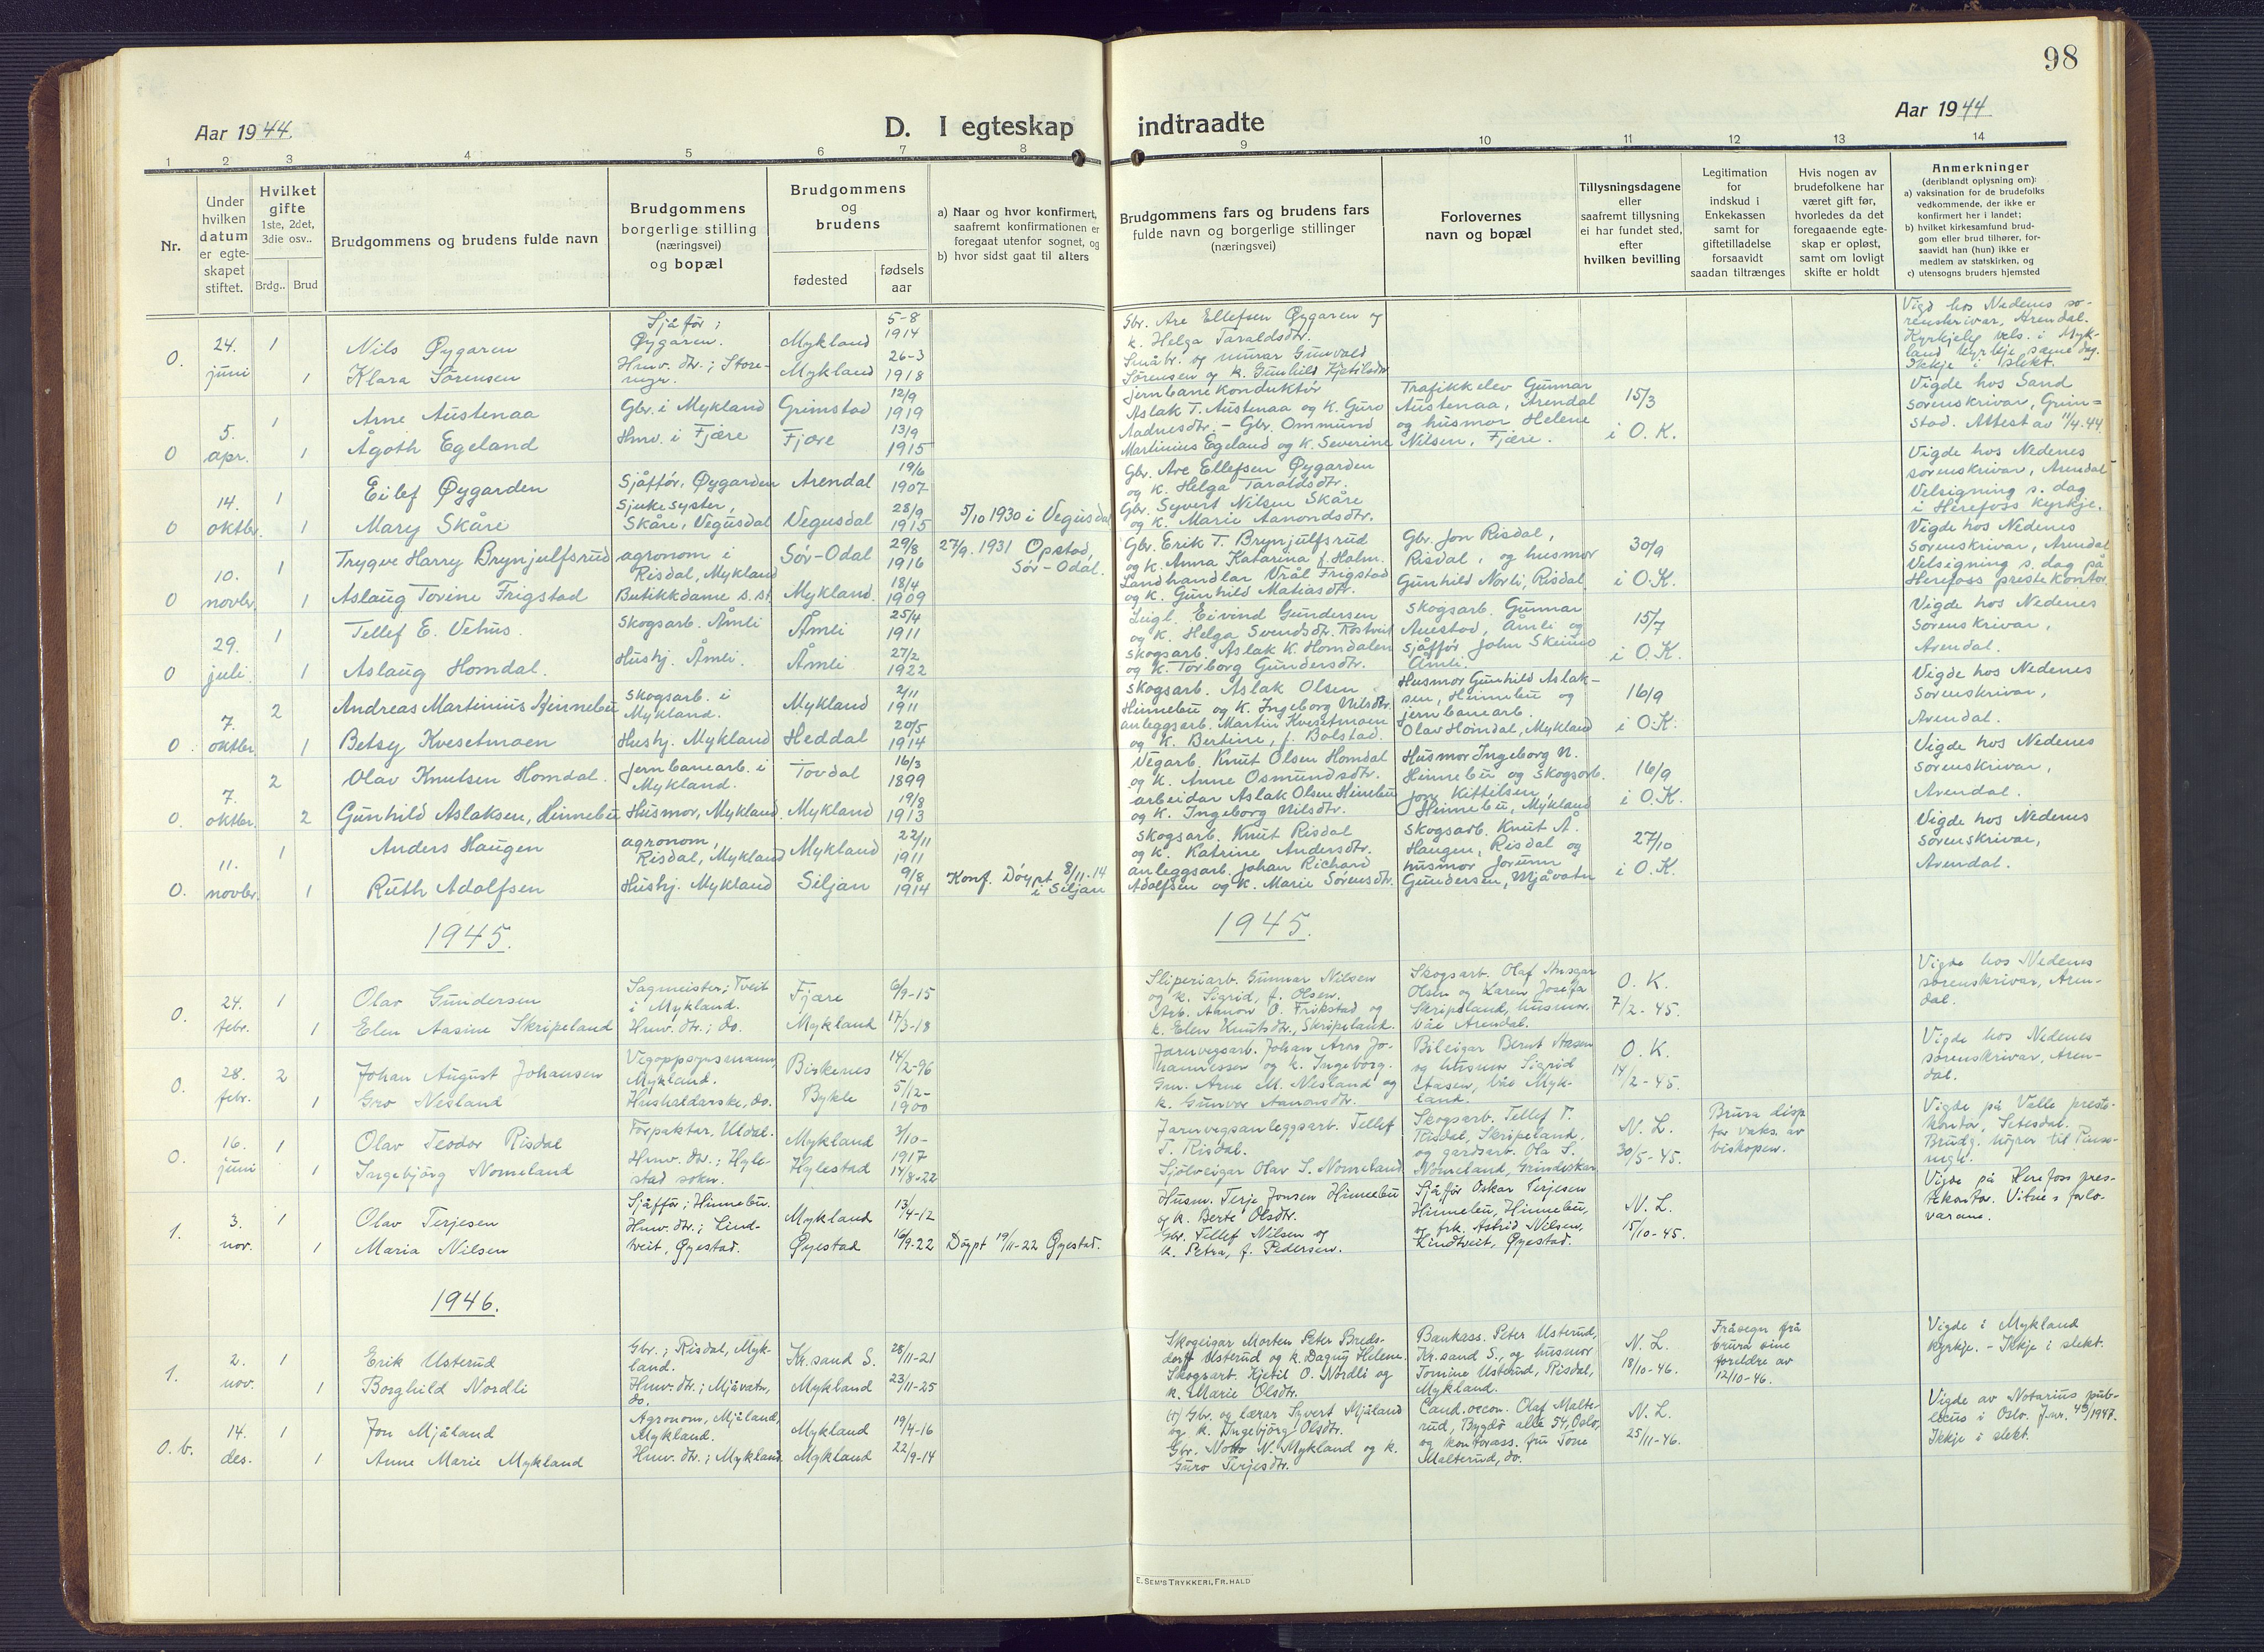 98
Aar 1944.
D. I egteskap indtraadte
Aar 1944
1 2 3 4 5 6 7 8 9 10 11 12 13 14
Nr.
Under
hvilken
datum
er egte-
skapet
stiftet.
Hvilket
gifte
1ste, 2det,
3die osv..
Brdg.. Brud
Brudgommens og brudens fulde navn
Brudgommens
borgerlige stilling
(næringsvei)
og bopæl
Brudgommens
og
brudens
fødested
fødsels
aar
a) Naar og hvor konfirmert,
saafremt konfirmationen er
foregaat utenfor sognet, og
b) hvor sidst gaat til alters
Brudgommens fars og brudens fars
fulde navn og borgerlige stillinger
(næringsvei)
Forlovernes
navn og bopæl
Tillysningsdagene
eller
saafremt tillysning
ei har fundet sted,
efter
hvilken bevilling
Legitimation
for
indskud i
Enkekassen
samt for
giftetilladelse
forsaavidt
saadan tiltrænges
Hvis nogen av
brudefolkene har
været gift før,
hvorledes da det
foregaaende egte-
skap er opløst,
samt om lovligt
skifte er holdt
Anmerkninger
(deriblandt oplysning om):
a) vaksination for de brudefolks
vedkommende, der ikke er
konfirmert her i landet;
b) hvilket kirkesamfund brud-
gom eller brud tilhører, for-
saavidt han (hun) ikke er
medlem av statskirken, og
c) utensogns bruders hjemsted
0.
24.
juni
1
1
Nils Øygaren
Klara Sörensen
Sjåfør;
Øygaren.
Huv. dtr.; Store-
Mykland
Mykland
5-8
1914
26-3
1918
Gbr. Are Ellefsen Øygaren og
k. Helga Taraldsdtr.
Småbr. og murar Gunvald
Sörensen og k. Gunhild Kjetilsdtr
Vigd hos Nedenes so-
renskrivar, Arendal.
Kyrkjeleg vels. i Myk-
land kyrkje same dag.
Ikkje i slekt.
0
5.
apr.
1
1
Arne Austenaa
Ågoth Egeland
Gbr. i Mykland
Huv. i Fjære
Grimstad
Fjære
12/9
1919
13/9
1915
jernbanekonduktør
Aslak T. Austenaa og K. Guro
Aadnesdtr. - Gbr. Ommund
Martinius Egeland og k. Severine
Trafikkelev Gunnar
Austenaa, Arendal
og husmor Helene
Nilsen, Fjære.
15/3
i O. K.
Vigde hos Sand
sorenskrivar, Grim=
stad. Attest av 11/4.44.
0
14.
oktbr.
1
1
Eilef Øygarden
Mary Skåre
Sjåfför, Øygarden
Sjukesyster,
Skåre, Vegusdal
Arendal
Vegusdal
19/6
1907
28/9
1915
5/10 1930 i Vegusdal
Gbr. Are Ellefsen Øygarden
og k. Helga Taraldsdtr.
Gbr. Syvert Nilsen Skåre
og k. Marie Aamondsdtr.
Vigde hos Nedenes
sorenskrivar, Arendal
Velsigning s. dag
i Herefoss kyrkje.
0
10.
novbr.
1
1
Trygve Harry Brynjulfsrud
Aslaug Tovine Frigstad
agronom i
Risdal, Mykland
Butikkdame s.st.
Sör-Odal
Mykland.
29/8
1916
18/4
1909
27/9. 1931 Opstad,
Sör-Odal.
Gbr. Erik T. Brynjulfsrud
og k. Anna Katarina f. Holm.
Landhandlar Vrål Frigstad
og k. Gunhild Matiasdtr.
Gbr. Jon Risdal,
Risdal, og husmor
Gunhild Norli, Risdal
30/9
i O.K.
Vigde hos Nedenes
sorenskrivar, Arendal
Velsigning s. dag på
Herefoss prestekontor.
0
29.
juli
1
1
Tellef E. Vehus.
Aslaug Homdal.
Skogsarb. Åmli
Hushj. Åmli.
Åmli
Åmli
25/4
1911
27/2
1922
Leigl. Eivind Gundersen
og K. Helga Svendsdtr. Rostveit
skogsarb. Aslak K. Homdalen
og K. Torborg Gundersdtr.
skogsarb. Gunnar
Auestad, Åmli og
sjåffør John Skeimo
Åmli.
15/7
i O.K.
Vigde hos Nedenes
Sorenskrivar,
Arendal.
0
7.
oktbr.
2
1
Andreas Martinius Hinnebu
Betsy Kvesetmoen
Skogsarb. i
Mykland.
Hushj. Mykland
Mykland
Heddal
2/11
1911
20/5
1914
skogsarb. Aslak Olsen
Hinnebu og K. Ingeborg Nilsdtr.
anleggsarb. Martin Kvesetmoen
og K. Bertine, f. Bolstad.
Husmor Gunhild Aslak-
sen, Hinnebu og
jernbanearb.
Olav Homdal, Mykland
16/9
i O.K.
Vigde hos Nedenes
Sorenskrivar,
Arendal.
0.
7.
oktbr.
2
2
Olav Knutsen Homdal.
Gunhild Aslaksen, Hinnebu
jernbanearb. i
Mykland.
Husmor, Mykland.
Tovdal
Mykland
16/3
1899
19/8
1913
Vegarb. Knut Olsen Homdal
og K. Anne Osmundsdtr.
arbeidar Aslak Olsen Hinnebu
og K. Ingeborg Nilsdtr.
Husmor Ingeborg N.
Hinnebu og skogsarb.
Jon Kittilsen,
Hinnebu, Mykland
16/9
i O.K.
Vigde hos Nedenes
Sorenskrivar,
Arendal.
0.
11.
novbr.
1
1
Anders Haugen
Ruth Adolfsen
agronom,
Risdal, Mykland
Hushj. Mykland
Mykland
Siljan
22/11
1911
9/8
1914
Konf. Döypt 8/11-14
i Siljan
Skogsarb. Knut Risdal
og k. Katrine Andersdtr.
anleggsarb. Johan Richard
Adolfsen og k. Marie Sörensdtr.
Skogsarb. Knut Å.
Haugen, Risdal og
husmor Jorunn
Gundersen, Mjåvatn
27/10
i O.K.
Vigde hos Nedenes
sorenskrivar,
Arendal.
1945.
1945.
0.
24.
febr.
1
1
Olav Gundersen
Elen Aasine Skripeland
Sagmeister; Tveit
i Mykland.
Huv. dtr.; do.
Fjære
Mykland
6/9-15
17/3-18
Sliperiarb. Gunnar Nilsen
og k. Sigrid, f. Olsen.
O. Frikstad og
k. Elen Knutsdtr., Skripeland.
Skogsarb. Olaf Ansgar
Olsen og Karen Josefa
Skripeland, husmor,
båe Arendal.
O. K.
7/2-45.
Vigde hos Nedenes
sorenskrivar, Aren-
dal.
0.
28.
febr.
2
1
Johan August Johansen
Gro Nesland
Vegoppsynsmann,
Mykland.
Hushaldarske, do.
Biskenes
Bykle
14/2-96
5/12-
1900
Jarnvegsarb. Johan Aron Jo-
hannessen og k. Ingeborg.
Gm. Arne M. Nesland og
k. Gunvor Aanonsdtr.
Bileigar Bernt Aasen
og husmor Sigrid
Aasen, båe Myk-
land.
O. K.
14/2-45.
Vigde hos Nedenes
sorenskrivar, Aren-
dal.
0.
16.
juni
1
1
Olav Teodor Risdal
Ingebjörg Nomeland
Forpaktar, Uldal.
Huv. dtr.; Hyle-
stad sokn.
Mykland
Hylestad
3/10-
1917
14/8-22
Jarnvegsanleggsarb. Tellef
T. Risdal.
Sjölveigar Olav S. Nomeland
Skogsarb. Tellef T.
Risdal, Skripeland,
og gardsarb. Ola S.
Nomeland, Grindeskar
N. L.
30/5-45.
Brura disp.
for vaks. av
biskopen.
Vigde på Valle preste-
kontor, Setesdal.
Brudg. høyrer til Pinse-
1.
3.
nov.
1
1
Olav Terjesen
Maria Nilsen
Sjåffør; Hinnebu.
Huv. dtr.; Lind-
tveit, Øyestad.
Mykland
Øyestad
13/4-12
16/9-22
Döypt 19/11-22 Øyestad.
Husm. Terje Jonsen Hinnebu
og k. Berte Olsdtr.
Gbr. Tellef Nilsen og
k. Petra, f. Pedersen.
Sjåfør Oskar Terjesen
Hinnebu, Hinnebu,
og frk. Astrid Nilsen,
Lindtveit, Øyestad.
N. L.
15/10-45.
Vigde på Herefoss pres-
tekontor. Vitne: forlo-
varane.
1946.
1.
2.
nov.
1
1
Erik Usterud
Borghild Nordli
Gbr.; Risdal, Myk-
land.
Huv. dtr.; Mjåvatn,
do.
Kr.sand S.
Mykland
28/11-21
23/11-25
Skogeigar Morten Peter Breds-
dorff Usterud og k. Dagny Helene.
Skogsarb. Kjetil O. Nordli og
k. Marie Olsdtr.
Bankass. Peter Usterud,
Kr.sand S., og husmor
Tomine Usterud, Risdal,
Mykland.
N. L.
18/10-46.
Fråsegn frå
brura sine
foreldre av
12/10-46.
Vigde i Mykland
kyrkje. - Ikkje i slekt.
0. b.
14.
des.
1
1
Jon Mjåland
Anne Marie Mykland
Agronom, Mjåland,
Mykland.
Huv. dtr.; Mykland.
Mykland
Mykland
19/4-16
22/9-14
Gbr. og lærar Syvert Mjåland
og k. Ingebjörg Olsdtr.
Gbr. N. Mykland og k.
Guro Terjesdtr.
Cand. oecon. Olaf Malte-
rud, Bygdö allé 54, Oslo,
og kontorass. fru Tone
Malterud, do.
N. L.
25/11-46.
Vigde av Notarius pub-
licus i Oslo. J.nr. /1947.
Ikkje i slekt.
E. SEM'S TRYKKERI, FR. HALD